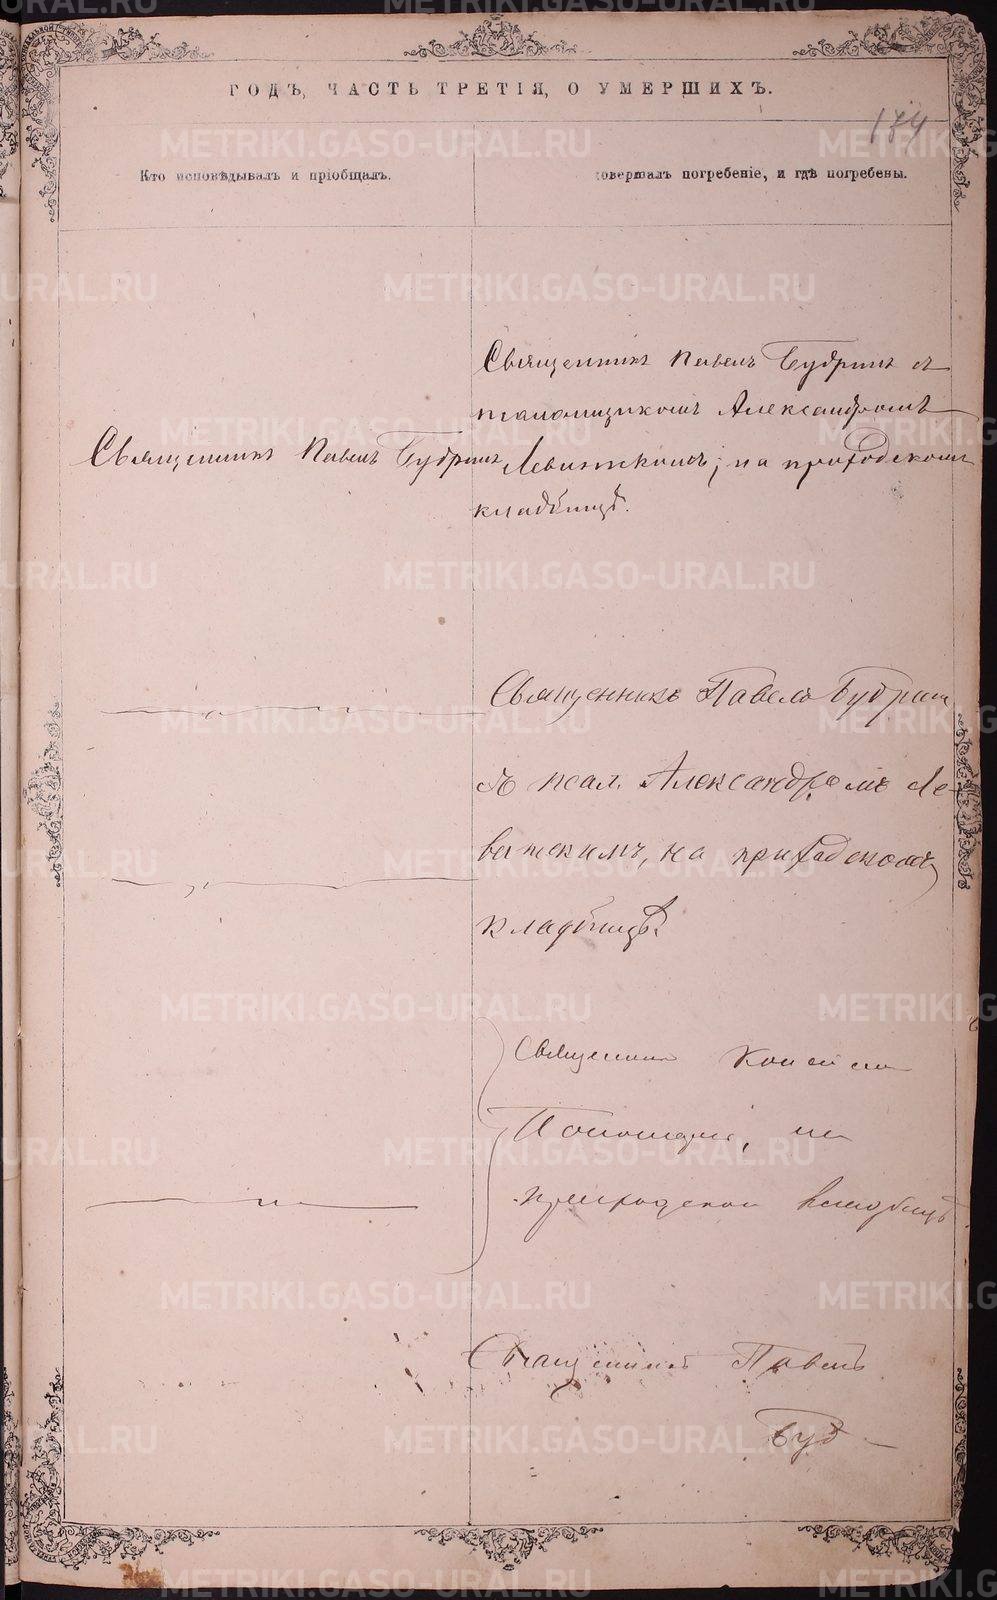 ГОДЪ, ЧАСТЬ ТРЕТІЯ, О УМЕРШИХЪ.
174
Кто исповѣдывалъ и пріобщалъ.
совершалъ погребеніе, и гдѣ погребены.
Священникъ Павелъ Будринъ съ
псаломщикомъ Александромъ
Священникъ Павелъ Будринъ
Левитскимъ; на приходскомъ
кладбищѣ.
Священникъ Павелъ Будринъ
съ псал. Александромъ Ле-
витскимъ, на приходскомъ
кладбищѣ.
Священникъ
на
приходскомъ кладбищѣ
Священникъ Павелъ
Буд
METRIKI.GASO-URAL.RU